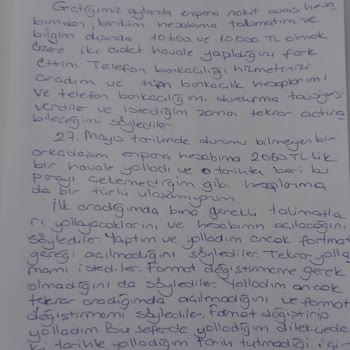 Geçtiğimiz aylarda enpara nakit avans hesa
bımdan, birikim hesabıma talimatım ve
bilgim dışında 10.600 ve 10.000 TL olmak
üzere iki adet havale yapıldığını fark
ettim. Telefon bankacılığı hizmetinizi
aradım ve tüm bankacılık hesaplarımı
ve telefon bankacılığımı durdurma tavsiyesi
verdiler ve istediğim zaman tekrar açtıra
bileceğimi söylediler.
27. Mayıs tarihinde durumu bilmeyen bir
arkadaşım enpara hesabıma 2060 TL lik
bir havale yolladı ve o tarihten beri bu
parayı çekemediğim gibi hesaplarıma
da bir türlü ulaşamıyorum.
İlk aradığımda bana gerekli talimatla
rı yollayacaklarını ve hesabımın açılacağını
söylediler. Yaptım ve yolladım ancak format
gereği açılmadığını söylediler. Tekrar yolla
mamı istediler. Format değiştirmeme gerek
olmadığını da söylediler. Yolladım ancak
tekrar aradığımda açılmadığını ve format
değiştirmemi söylediler. Format değiştirip
yolladım. Bu seferde yolladığım dilekçede
ki tarihle yolladığım tarih tutmadığı için